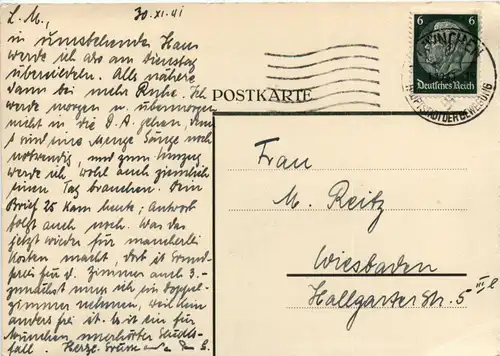 L. M., 30. XI. 41
in umstehendem Haus
werde ich also am Dienstag
übersiedeln. Alles nähere
dann bei mehr Ruhe. Ich
werde morgen u. übermorgen
nicht in die D. A. gehen, denn
sind eine Menge Gänge noch
notwendig, und zum Umzug
werde ich wohl auch ziemlich
einen Tag brauchen. Dein
Brief 25 kam heute; Antwort
folgt auch noch. Was das
jetzt wieder für mancherlei
Kosten macht, dort ist
frei für d. Zimmer auch 3.-
muss ich ein Doppel-
zimmer nehmen, weil kein
anders frei ist. Es ist ein für
München unerhörter
fall. Herzl.
POSTKARTE
6 6
Deutsches Reich
MÜNCHEN
HAUPTSTADT DER BEWEGUNG
Frau
M. Reitz
Wiesbaden
Hallgarter Str. 5 III